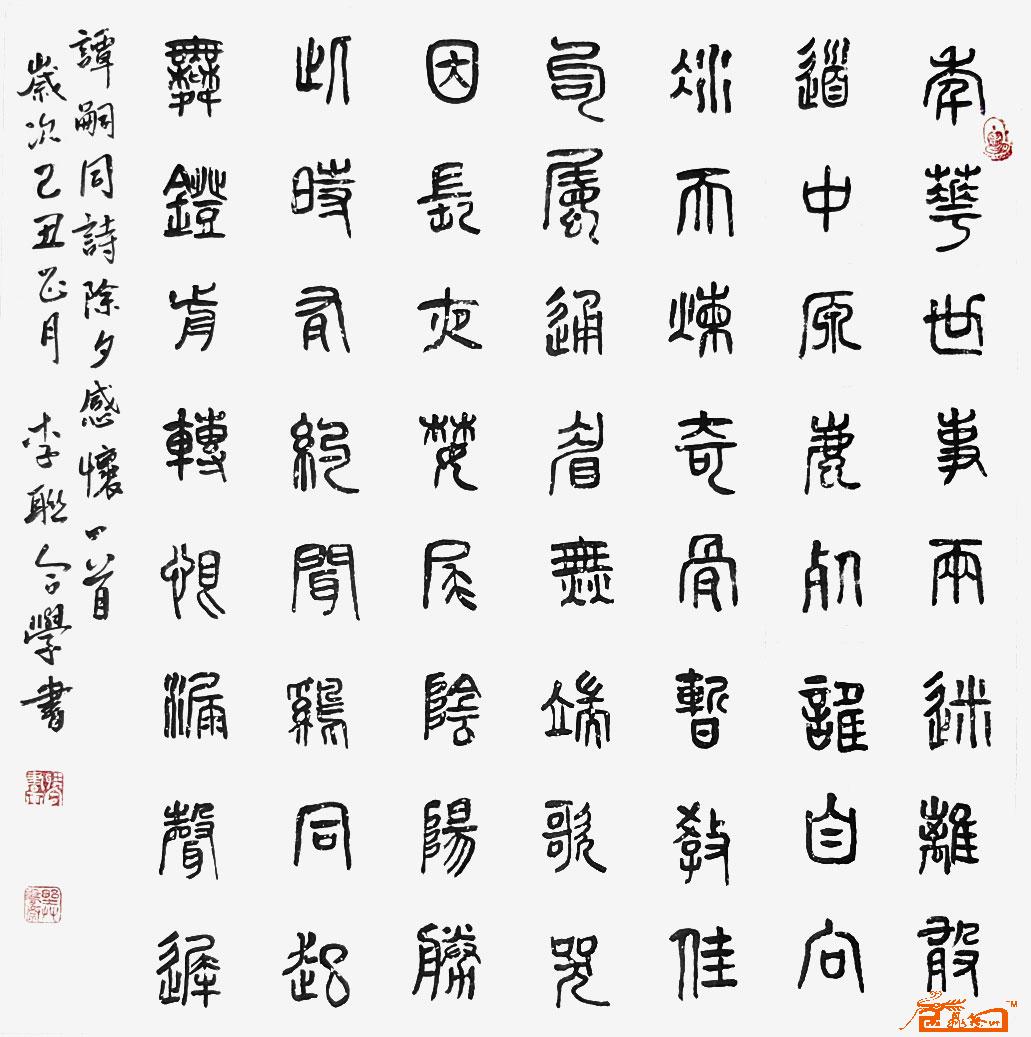 年華世事兩迷離敢
道中原鹿死誰自向
冰天煉奇骨暫教佳
句屬通眉無端歌哭
因長夜婪尾陰陽勝
此時有約聞鷄同起
舞鐙前轉恨漏聲遲
譚嗣同詩除夕感懷四首
歲次己丑正月 李聯合學書